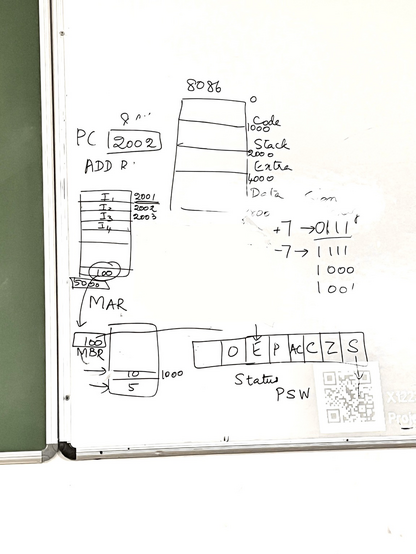 8086
0
Code
1000
Stack
2000
Extra
4000
Data
PC 2002
ADD R
I1 2001
I2 2002
I3 2003
I4
100
5000
MAR
100
MBR
10 1000
5
+7 → 0111
-7 → 1111
1000
1001
O E P AC C Z S
Status
PSW